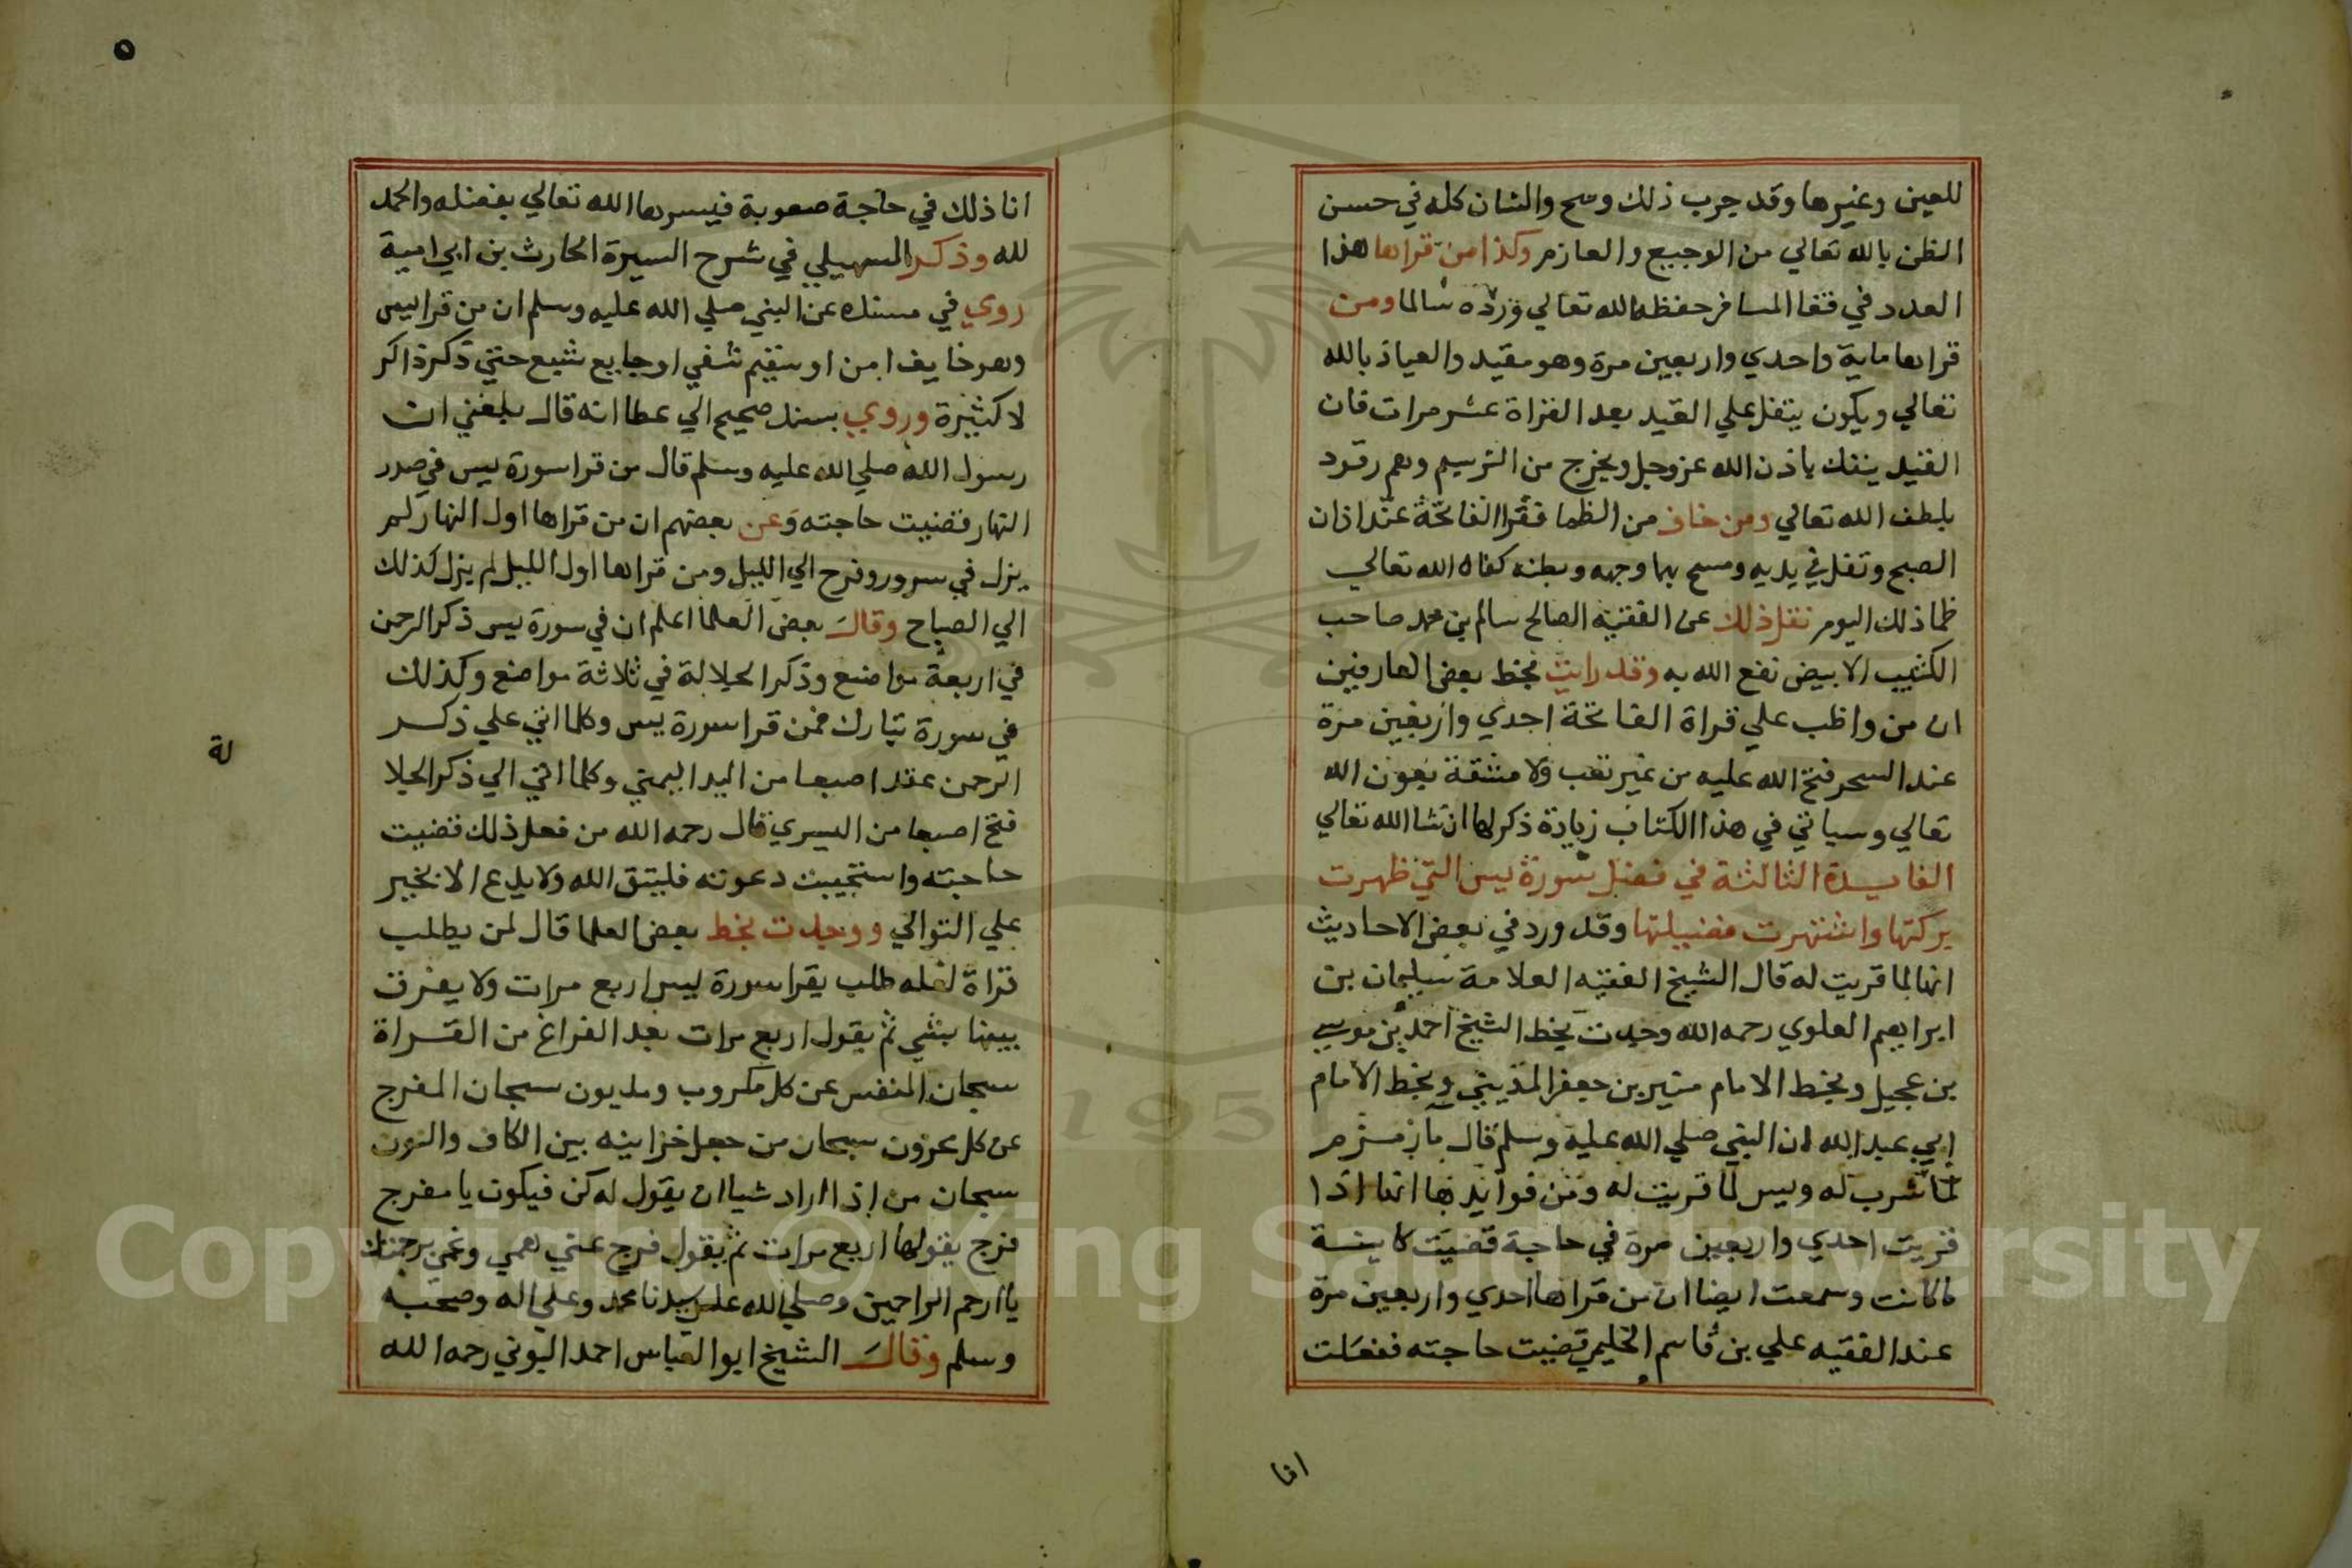 للعين وغيرها وقد جرب ذلك وصح والشان كله في حسن
الظن بالله تعالي من الوجيع والعازم وكذا من قراها هذا
العدد في قفا المسافر حفظه الله تعالي ورده سالما ومن
قراها ماية واحدي واربعين مرة وهو مقيد والعياذ بالله
تعالي ويكون يتفل علي القيد بعد القراة عشر مرات فان
القيد ينفك باذن الله عز وجل ويخرج من الترسيم وهم رقود
بلطف الله تعالي ومن خاف من الظما فقرا الفاتحة عند اذان
الصبح وتفل في يديه ومسح بها وجهه وبطنه كفاه الله تعالي
ظما ذلك اليوم نقل ذلك عن الفقيه الصالح سالم بن محمد صاحب
الكثيب الابيض نفع الله به وقد رايت بخط بعض العارفين
ان من واظب علي قراة الفاتحة احدي واربعين مرة
عند السحر فتح الله عليه من غير تعب ولا مشقة بعون الله
تعالي وسياتي في هذا الكتاب زيادة ذكر لها ان شا الله تعالي
الفايدة الثالثة في فضل سورة يس التي ظهرت
بركتها واشتهرت فضيلتها وقد ورد في بعض الاحاديث
انها لما قريت له قال الشيخ الفقيه العلامة سليمان بن
ابراهيم العلوي رحمه الله وجدت بخط الشيخ احمد بن موسي
بن عجيل وبخط الامام منير بن جعفر وبخط الامام
ابي عبد الله ان النبي صلي الله عليه وسلم قال ما زمزم
لما شرب له ويس لما قريت له ومن فوايدها انها اذا
قريت احدي واربعين مرة في حاجة قضيت كاينة
ما كانت وسمعت ايضا ان من قراها احدي واربعين مرة
عند الفقيه علي بن قاسم قضيت حاجته ففعلت
انا
٥
انا ذلك في حاجة صعوبة فيسرها الله تعالي بفضله والحمد
لله وذكر السهيلي في شرح السيرة الحارث بن ابي امية
روي في مسنده عن النبي صلي الله عليه وسلم ان من قرا يس
وهو خايف امن او سقيم شفي او جايع شبع حتي ذكر ذاكر
لا كثيرة وروي بسند صحيح الي عطا انه قال بلغني ان
رسول الله صلي الله عليه وسلم قال من قرا سورة يس في صدر
النهار قضيت حاجته وعن بعضهم ان من قراها اول النهار لم
يزل في سرور وفرح الي الليل ومن قراها اول الليل لم يزل كذلك
الي الصباح وقال بعض العلما اعلم ان في سورة يس ذكر الرحمن
في اربعة مواضع وذكر الجلالة في ثلاثة مواضع وكذلك
في سورة تبارك فمن قرا سورة يس وكلما اتي علي ذكر
الرحمن عقد اصبعا من اليد اليمني وكلما اتي الي ذكر الجلا
لة
فتح اصبعا من اليسري قال رحمه الله من فعل ذلك قضيت
حاجته واستجيبت دعوته فليتق الله ولا يدع الا بخير
علي التوالي ووجدت بخط بعض العلما قال لمن يطلب
قراة لعله طلب يقرا سورة يس اربع مرات ولا يفرق
بينها بشي ثم يقول اربع مرات بعد الفراغ من القراة
سبحان المنفس عن كل مكروب ومديون سبحان المفرج
عن كل محزون سبحان من جعل خزاينه بين الكاف والنون
سبحان من اذا اراد شيا ان يقول له كن فيكون يا مفرج
فرج يقولها اربع مرات ثم يقول فرج عني همي وغمي برحمتك
يا ارحم الراحمين وصلي الله علي سيدنا محمد وعلي اله وصحبه
وسلم وقال الشيخ ابو العباس احمد البوني رحمه الله
Copyright © King Saud University
1957